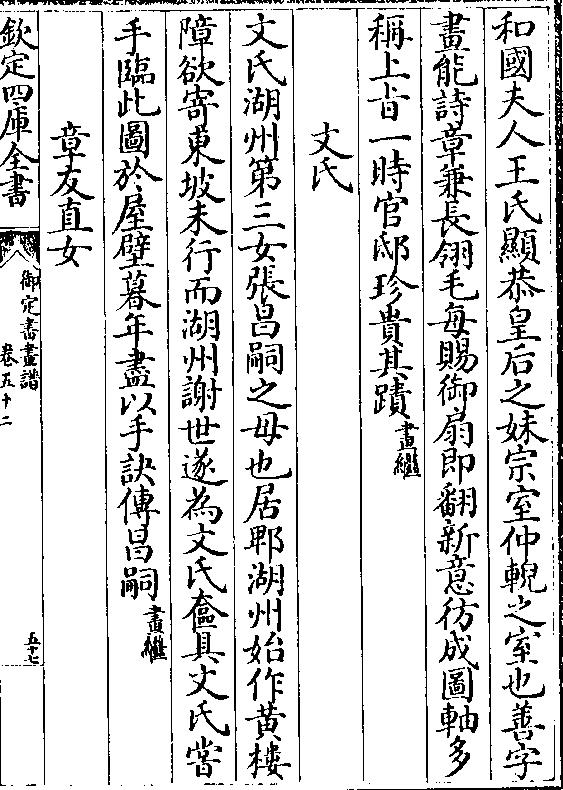 和國夫人王氏顯恭皇后之妹宗室仲輗之室也善字
畫能詩章兼長翎毛每賜御扇即翻新意彷成圖軸多
稱上旨一時官邸珍貴其蹟畫繼
文氏
文氏湖州第三女張昌嗣之母也居郫湖州始作黄樓
障欲寄東坡未行而湖州謝世遂為文氏奩具文氏嘗
手臨此圖於屋壁暮年盡以手訣傳昌嗣畫繼
章友直女
欽定四庫全書
御定書畫譜
卷五十二
五十七